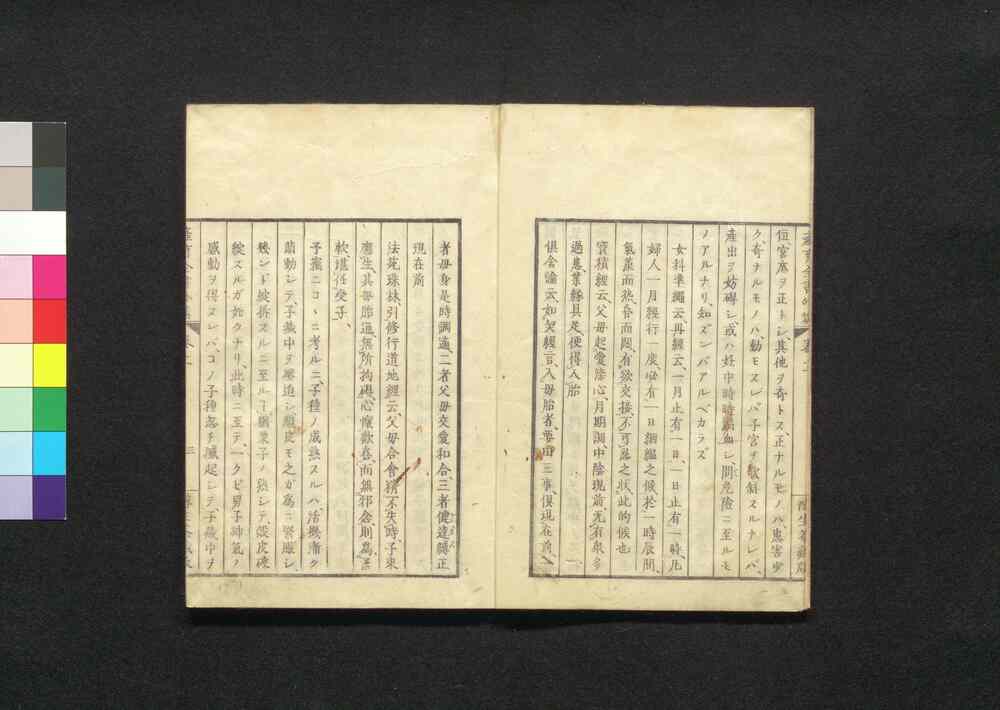 位宮底ヲ正トシ、其他ヲ奇トス、正ナルモノハ、患害少
ク、奇ナルモノハ、動モスレバ子宮ヲ欹斜スルナレバ、
産出ヲ妨碍シ、或ハ妊中時時漏血シ、間危険ニ至ルモ
ノアルナリ、知ズンバアルベカラズ
女科準縄云、丹經云、一月止有一日、一日止有一時、凡
婦人一月經行一度、必有一日絪縕之候、於一時辰間、
氣蒸而熱、昏而悶、有欲交接、不可忍之状、此的候也
寶積經云、父母起愛染心、月期調、中陰現前、无有衆多
過患、業縁具足、便得入胎
倶舎論云、如契經言、入母胎者、要由三事、倶現在前、一
者母身是時調適、二者父母交愛和合、三者健達縛正
現在前
法苑珠林、引修行道地經云、父母合會、精不失時、子來
應生、其母胎通、無所拘礙、心懷歡喜、而無邪念、則為柔
軟、堪任受子、
子攟ニコヽニ考ルニ、子種ノ成熟スルハ、活機漸ク
萠動シテ、子蔵中ヲ壓迫シ、顆皮モ之ガ為ニ緊脹シ、
殆ンド綻拆スルニ至ル
綻スルガ如クナリ、此時ニ至テ、一タビ男子紳氣ノ
感動ヲ得ヌレバ、コノ子種忽チ撼起シテ、子蔵中ヲ
三